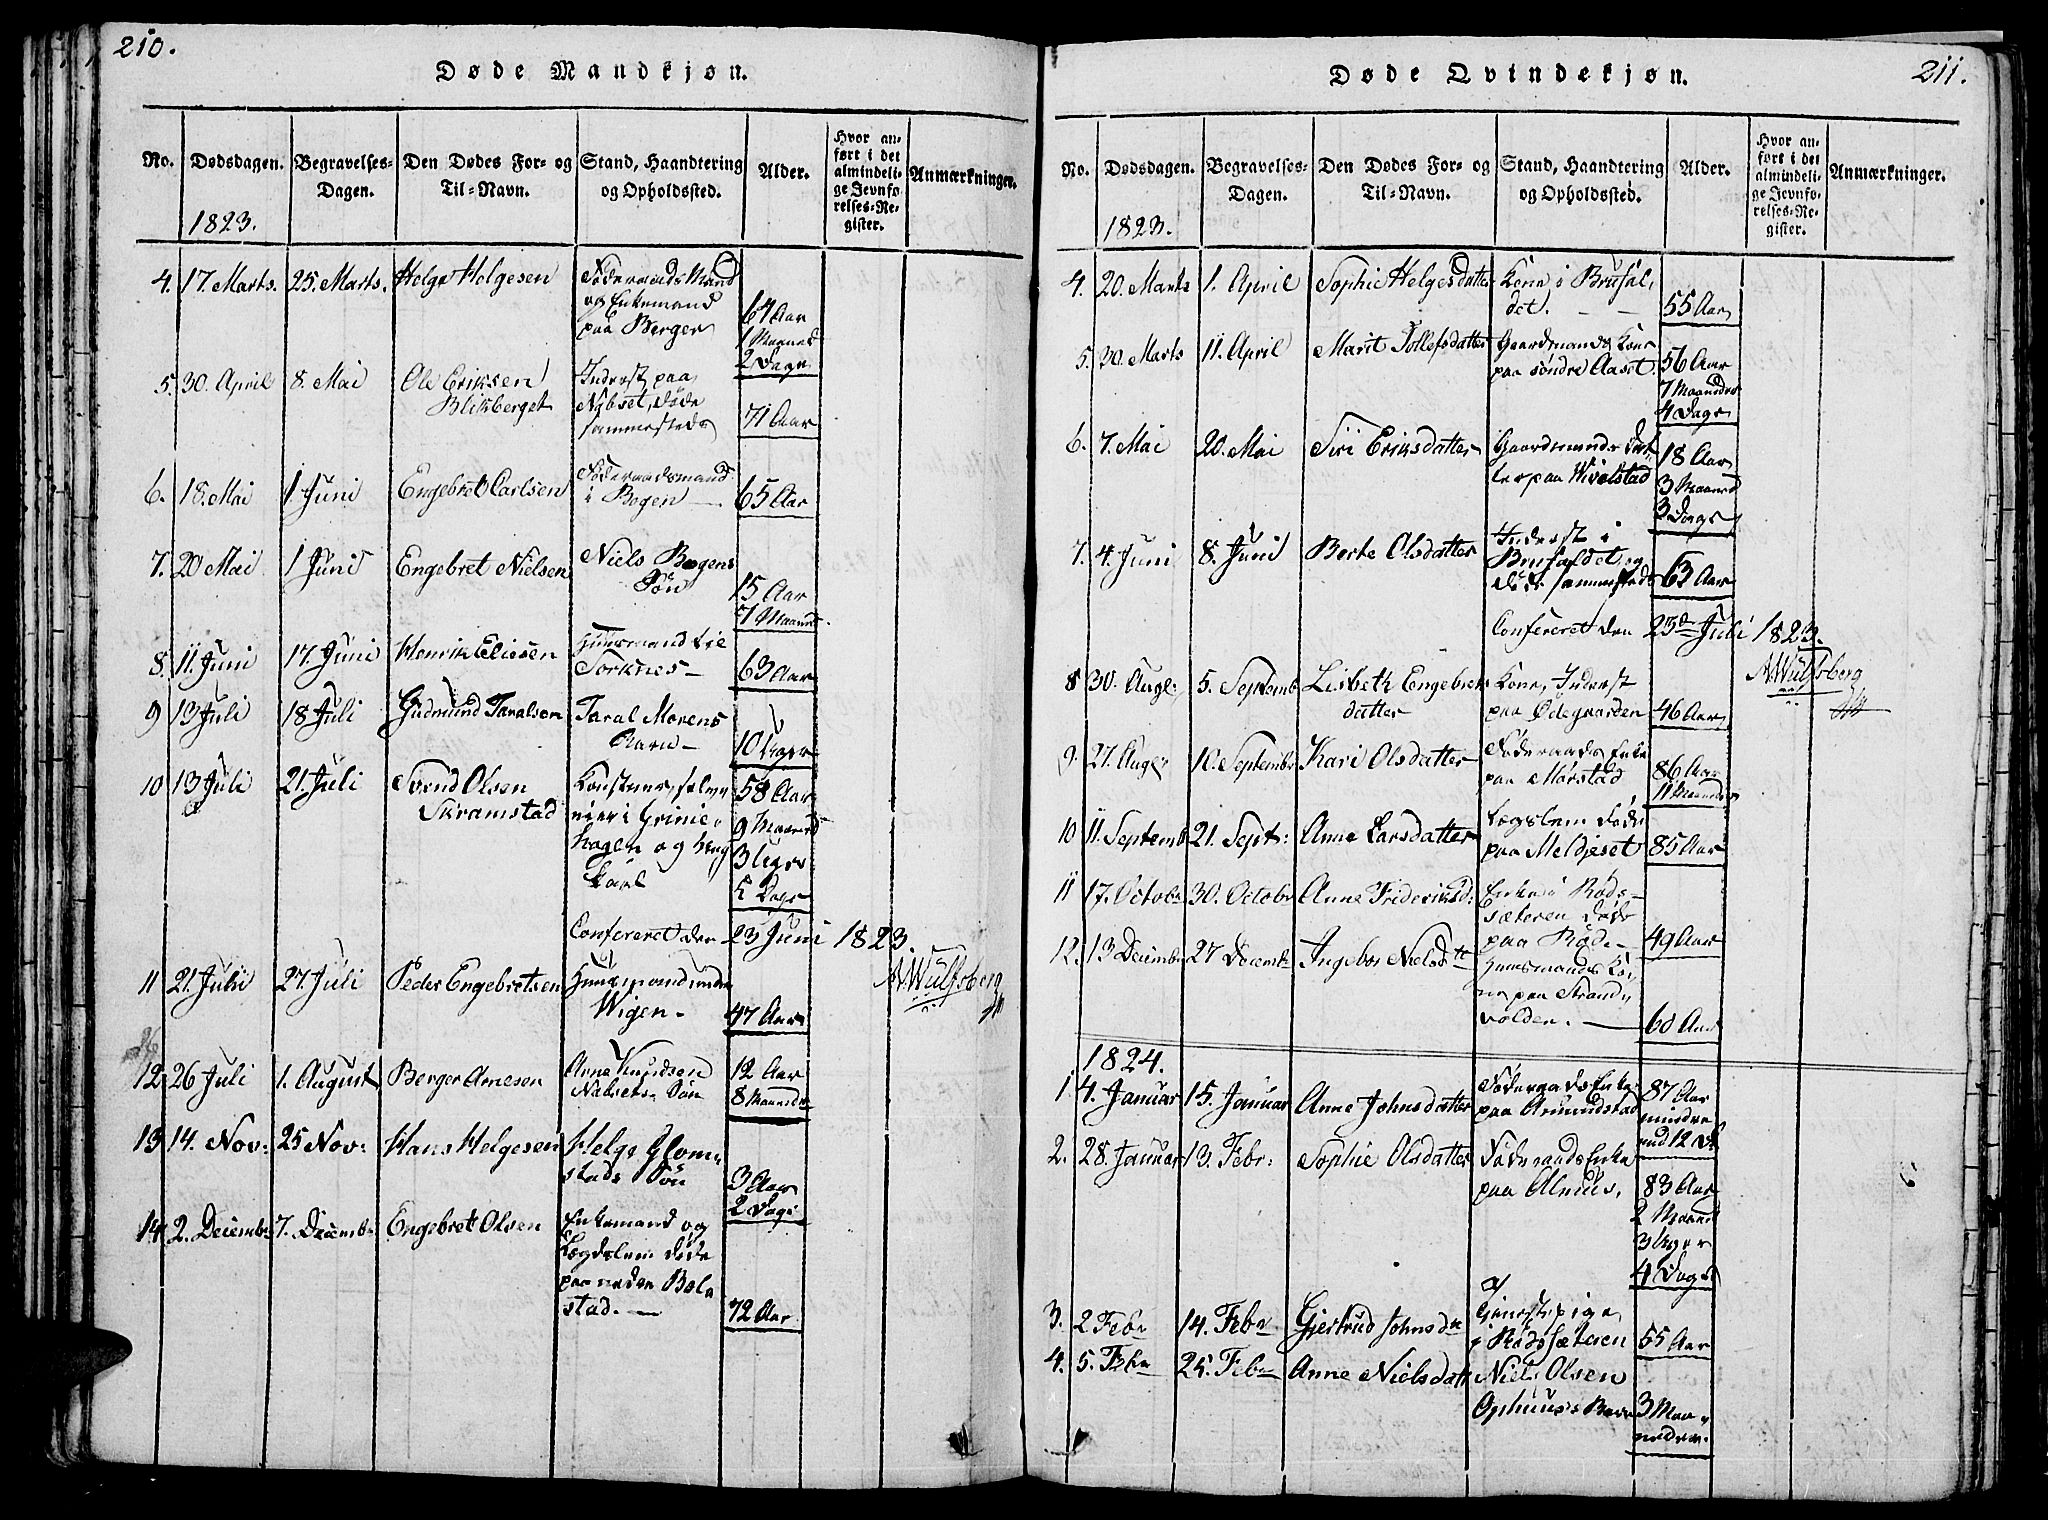 210.
Døde Mandkjøn.
No. Dødsdagen. Begravelses-Dagen. Den Dødes For- og Til-Navn. Stand, Haandtering og Opholdssted. Alder. Hvor anført i det almindelige Jevnførelses-Register. Anmærkninger.
1823.
4. 17. Marts. 25. Marts. Helge Helgesen Föderaads Mand
og Enkemand
paa Berger 64 Aar
1 Maaned
2 Dage
5. 30. April 8. Mai Ole Eriksen Inderst paa
Blikberget Nabset, döde
sammesteds 71 Aar
6. 18. Mai 1. Juni Engebret Carlsen Föderaadsmand
i Bogen — 65 Aar
7. 20 Mai 1 Juni Engebret Nielsen Niels Bogens
Sön 15 Aar
7 Maaned
8. 11. Juni 17. Juni Henrik Eliesen Huusmand til
Torknes — 63 Aar
9 13 Juli 18 Juli Gudmund Taralsen Taral Morens
Barn — 10 Uger
10 13 Juli 21. Juli Svend Olsen
Skramstad 58 Aar
9 Maaned
3 Uger
5 Dage
Confereret den 23 Juni 1823.
A. Wulfsberg
11 21. Juli 27. Juli Peder Engebretsen Huusmand under
Wigen — 47 Aar
12 26 Juli 1. August Berger Arnesen Arne Knudsen 12 Aar
Nabsets Sön 8 Maaneder
13 14. Nov: 25 Nov: Hans Helgesen Helge Glom-
stads Sön 3 Aar
2 Dage
14 2. Decembr 7. Decembr Engebret Olsen Enkemand og
Lægdslem döde
paa neden Bol-
stad. — 72 Aar
211.
Døde Qvindekjøn.
No. Dødsdagen. Begravelses-Dagen. Den Dødes For- og Til-Navn. Stand, Haandtering og Opholdssted. Alder. Hvor anført i det almindelige Jevnførelses-Register. Anmærkninger.
1823.
4. 20. Marts 1. April Sophie Helgesdatter Kone i Brufal-
det. — 55 Aar
5. 30. Marts 11. April Marit Tollefsdatter Gaardmands Kone
paa söndre Aaset 56 Aar
7 Maaneder
4 Dage
6. 7. Mai 20. Mai Siri Eriksdatter Gaardmands Dat-
ter paa Wivelstad 18 Aar
3 Maaned
3 Dage
7. 4. Juni 8. Juni Berte Olsdatter Inderst i
Brufaldet, og
döde sammesteds 63 Aar
Confereret den 23de Juli 1823.
A. Wulfsberg
8 30. Aug: 5. Septemb Lisbeth Engebrets- Kone, Inderst
datter paa Ødegaarden 46 Aar
9. 27. Aug: 10. Septembr Kari Olsdatter Föderaads Enke
paa Mörstad 86 Aar
11 Maaneder
10 11. Septemb 21. Sept: Anne Larsdatter Lægslem döde
paa Meldieset 85 Aar
11 17. Octobr 30. Octobr Anne Frideriksd: Enke i Röds-
sæteren döde
paa Röde — 49 Aar
12. 13 Decembr 27 Decembr Ingebor Nielsdtt Huusmands Ko-
ne paa Strand-
volden. — 60 Aar
1824.
1. 4. Januar 15. Januar Anne Johnsdatter Föderaads Enke 87 Aar
paa Amundstad mindre
end 12 D.
2. 28. Januar 13. Febr: Sophie Olsdatter Föderaads Enke
paa Alnæus, 83 Aar
2 Maaned
3 Uger
4 Dage
3. 2 Febr 14. Febr Gjertrud Johnsdtr Tjenestepige
i Rödssæteren 55 Aar
4. 5. Febr 25. Febr Anne Nielsdatt Niels Olsen
Ophuus's Barn 3 Maa-
neder.